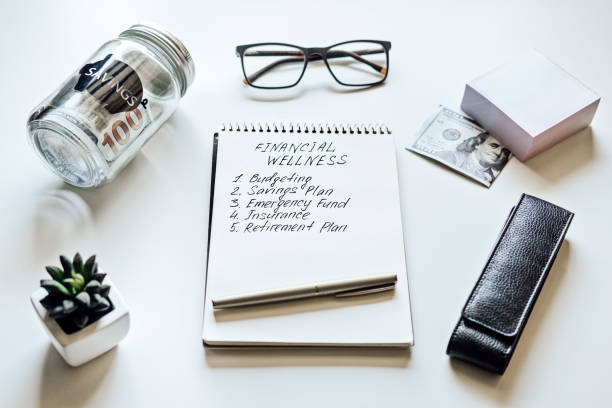 SAVINGS
100
FINANCIAL
WELLNESS
1. Budgeting
2. Savings Plan
3. Emergency Fund
4. Insurance
5. Retirement Plan